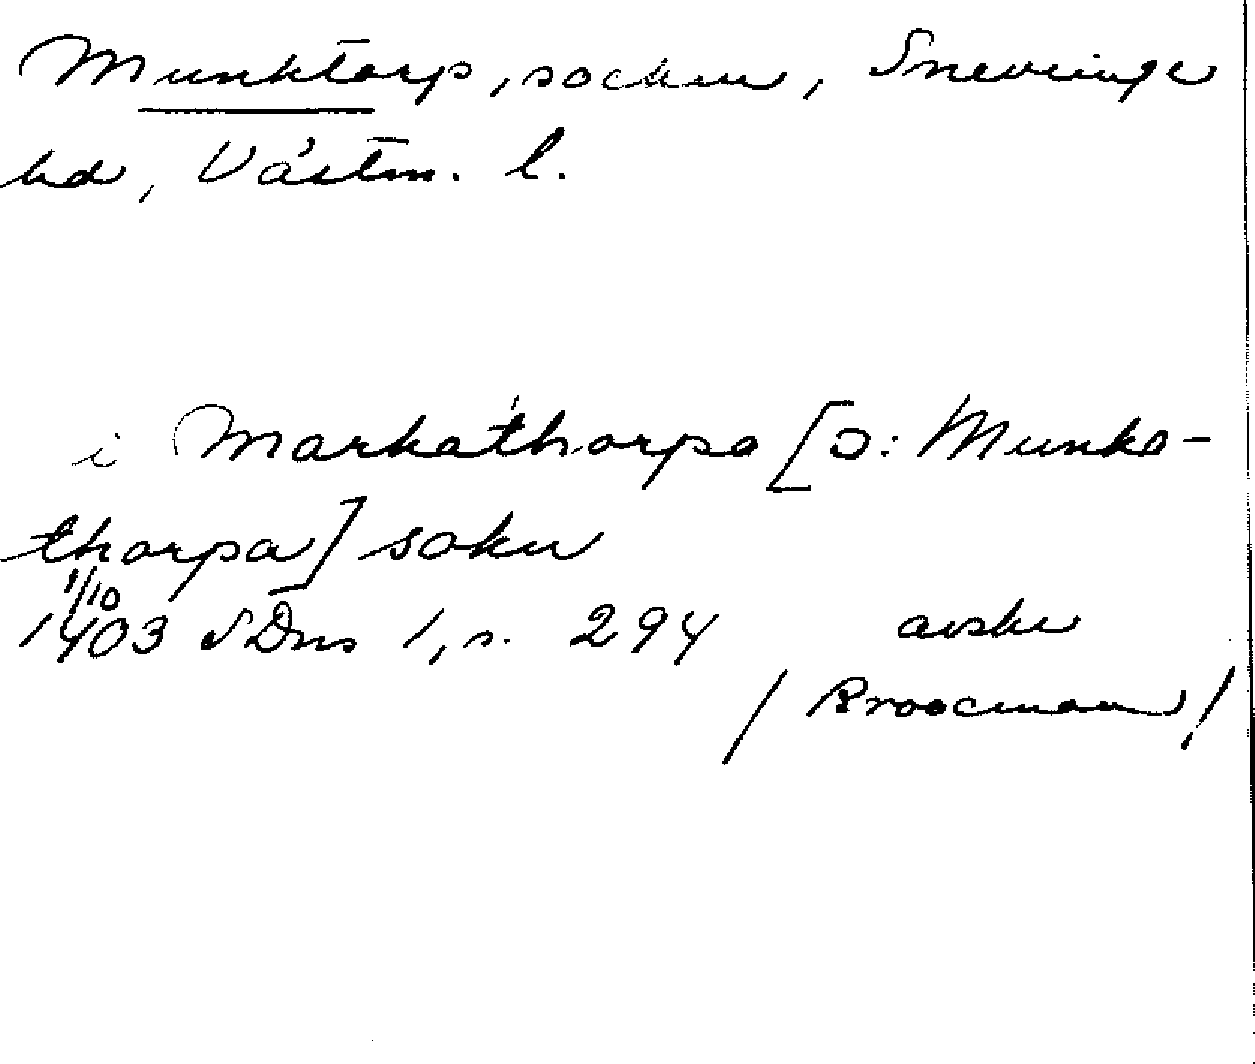 Munktorp, socken, Snevringe
hd, Västm. l.
i Markathorpa [ɔ: Munka-
thorpa] sokn
1/10
1403 SDns 1, s. 294 avskr
/Broocman/